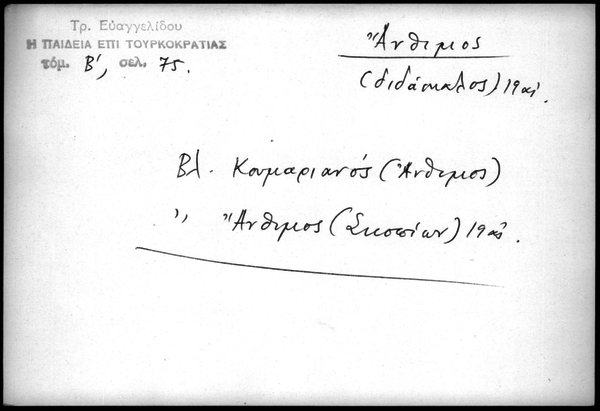 Τρ. Εὐαγγελίδου
Η ΠΑΙΔΕΙΑ ΕΠΙ ΤΟΥΡΚΟΚΡΑΤΙΑΣ
τόμ. Β', σελ. 75.
Ἄνθιμος
(διδάσκαλος) 19 αἰ.
Βλ. Κουμαριανός (Ἄνθιμος)
" Ἄνθιμος (Σκοπίων) 19 αἰ.